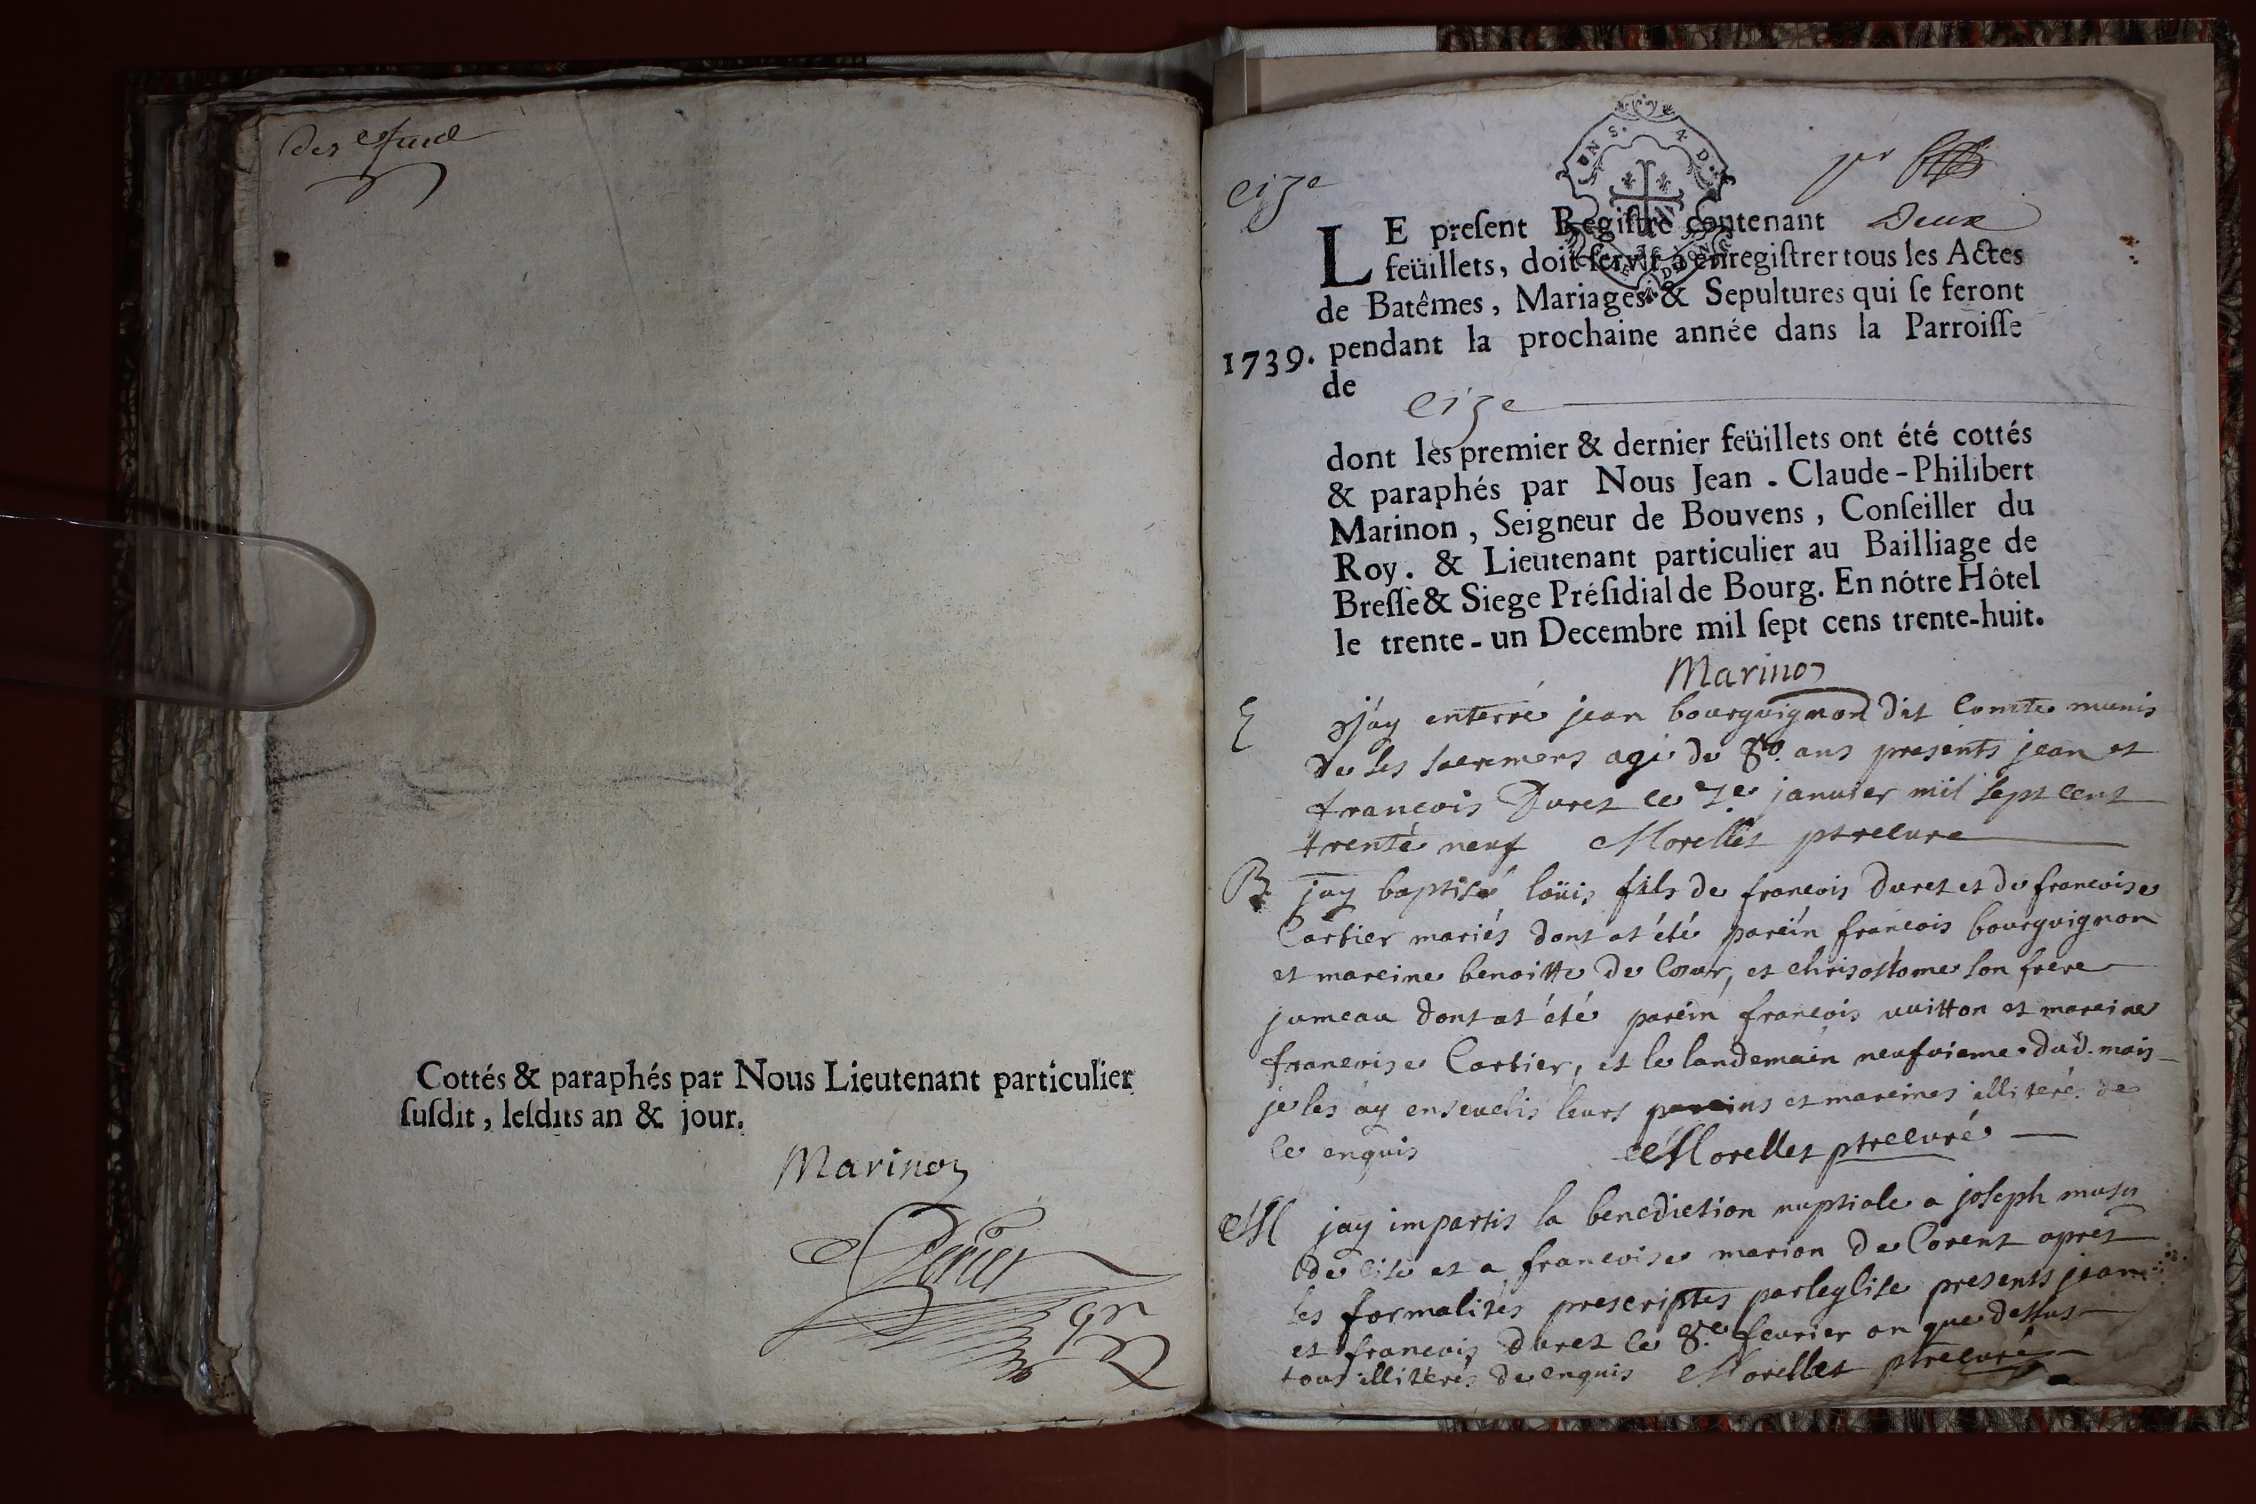 Cottés & paraphés par Nous Lieutenant particulier
ſuſdit, leſdits an & jour.
Marinon
Perier
eize
UN S. 4 D.
LE preſent Regiſtre contenant Deux
feüillets, doit ſervir à enregiſtrer tous les Actes
de Batêmes, Mariages & Sepultures qui ſe feront
1739. pendant la prochaine année dans la Parroiſſe
de
eize
dont les premier & dernier feüillets ont été cottés
& paraphés par Nous Jean-Claude-Philibert
Marinon, Seigneur de Bouvens, Conſeiller du
Roy. & Lieutenant particulier au Bailliage de
Breſſe & Siege Préſidial de Bourg. En nôtre Hôtel
le trente-un Decembre mil ſept cens trente-huit.
Marinon
E j'ay enterré jean bourguignon dit Comte munis
de ses sacremens agé de 80 ans presents jean et
francois Duret ce 7e janvier mil sept cent
trente neuf Morellet ptre curé
B jay baptisé loüis fils de francois duret et de francoise
Cartier mariés dont at été parein francois bourguignon
et mareine benoitte de Coeur, et chrisostome son frere
jumeau dont at été parein francois vuitton et mareine
francoise Cartier, et le landemain neufvieme dud. mois
je les ay ensevelis leurs pareins et mareines illiteré de
ce enquis Morellet ptre curé
M jay impartis la benediction nuptiale a joseph musy
de eise et a francoise marion de Corent apres
les formalités prescriptes par leglise presents jean
et francois duret ce 8e fevrier an que dessus
tous illiterés de enquis Morellet ptre curé